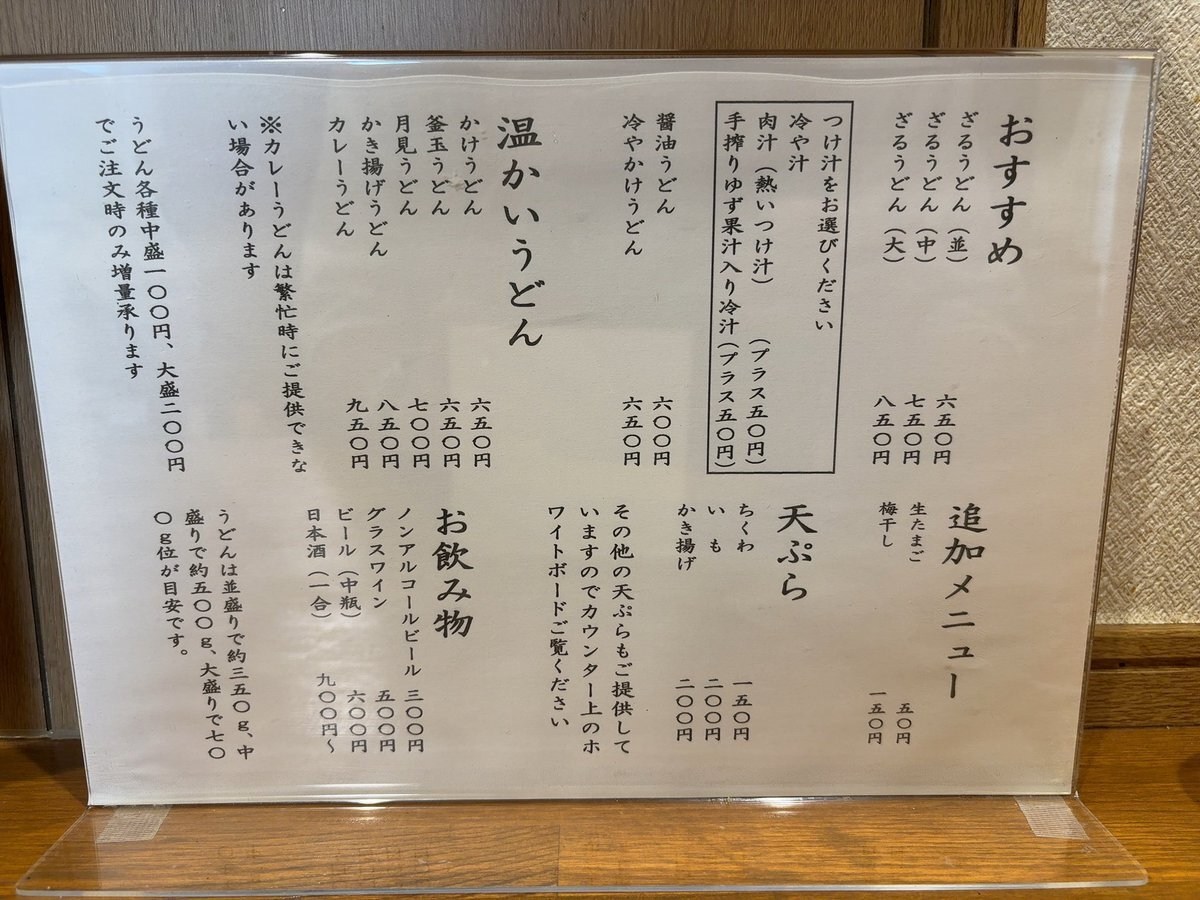 おすすめ
ざるうどん（並）　六五〇円
ざるうどん（中）　七五〇円
ざるうどん（大）　八五〇円
つけ汁をお選びください
冷や汁
肉汁（熱いつけ汁）　（プラス五〇円）
手搾りゆず果汁入り冷汁（プラス五〇円）
醤油うどん　六〇〇円
冷やかけうどん　六五〇円
温かいうどん
かけうどん　六五〇円
釜玉うどん　六五〇円
月見うどん　七〇〇円
かき揚げうどん　八五〇円
カレーうどん　九五〇円
※カレーうどんは繁忙時にご提供できな
い場合があります
うどん各種中盛一〇〇円、大盛二〇〇円
でご注文時のみ増量承ります
追加メニュー
生たまご　五〇円
梅干し　一五〇円
天ぷら
ちくわ　一五〇円
いも　二〇〇円
かき揚げ　二〇〇円
その他の天ぷらもご提供して
いますのでカウンター上のホ
ワイトボードご覧ください
お飲み物
ノンアルコールビール　三〇〇円
グラスワイン　五〇〇円
ビール（中瓶）　六〇〇円
日本酒（一合）　九〇〇円〜
うどんは並盛りで約三五〇ｇ、中
盛りで約五〇〇ｇ、大盛りで七〇
〇ｇ位が目安です。